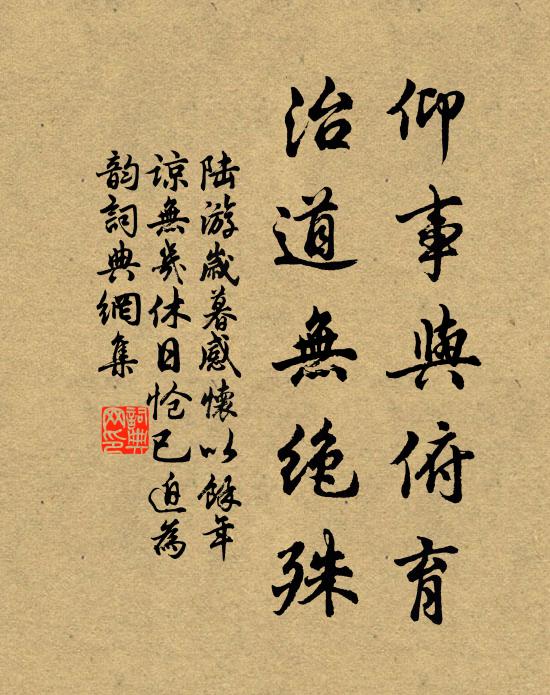 仰事與俯育
治道無絶殊
陆游歲暮感懷以餘年
諒無幾休日愴已迫為
韵詞典網集
詞典
网印